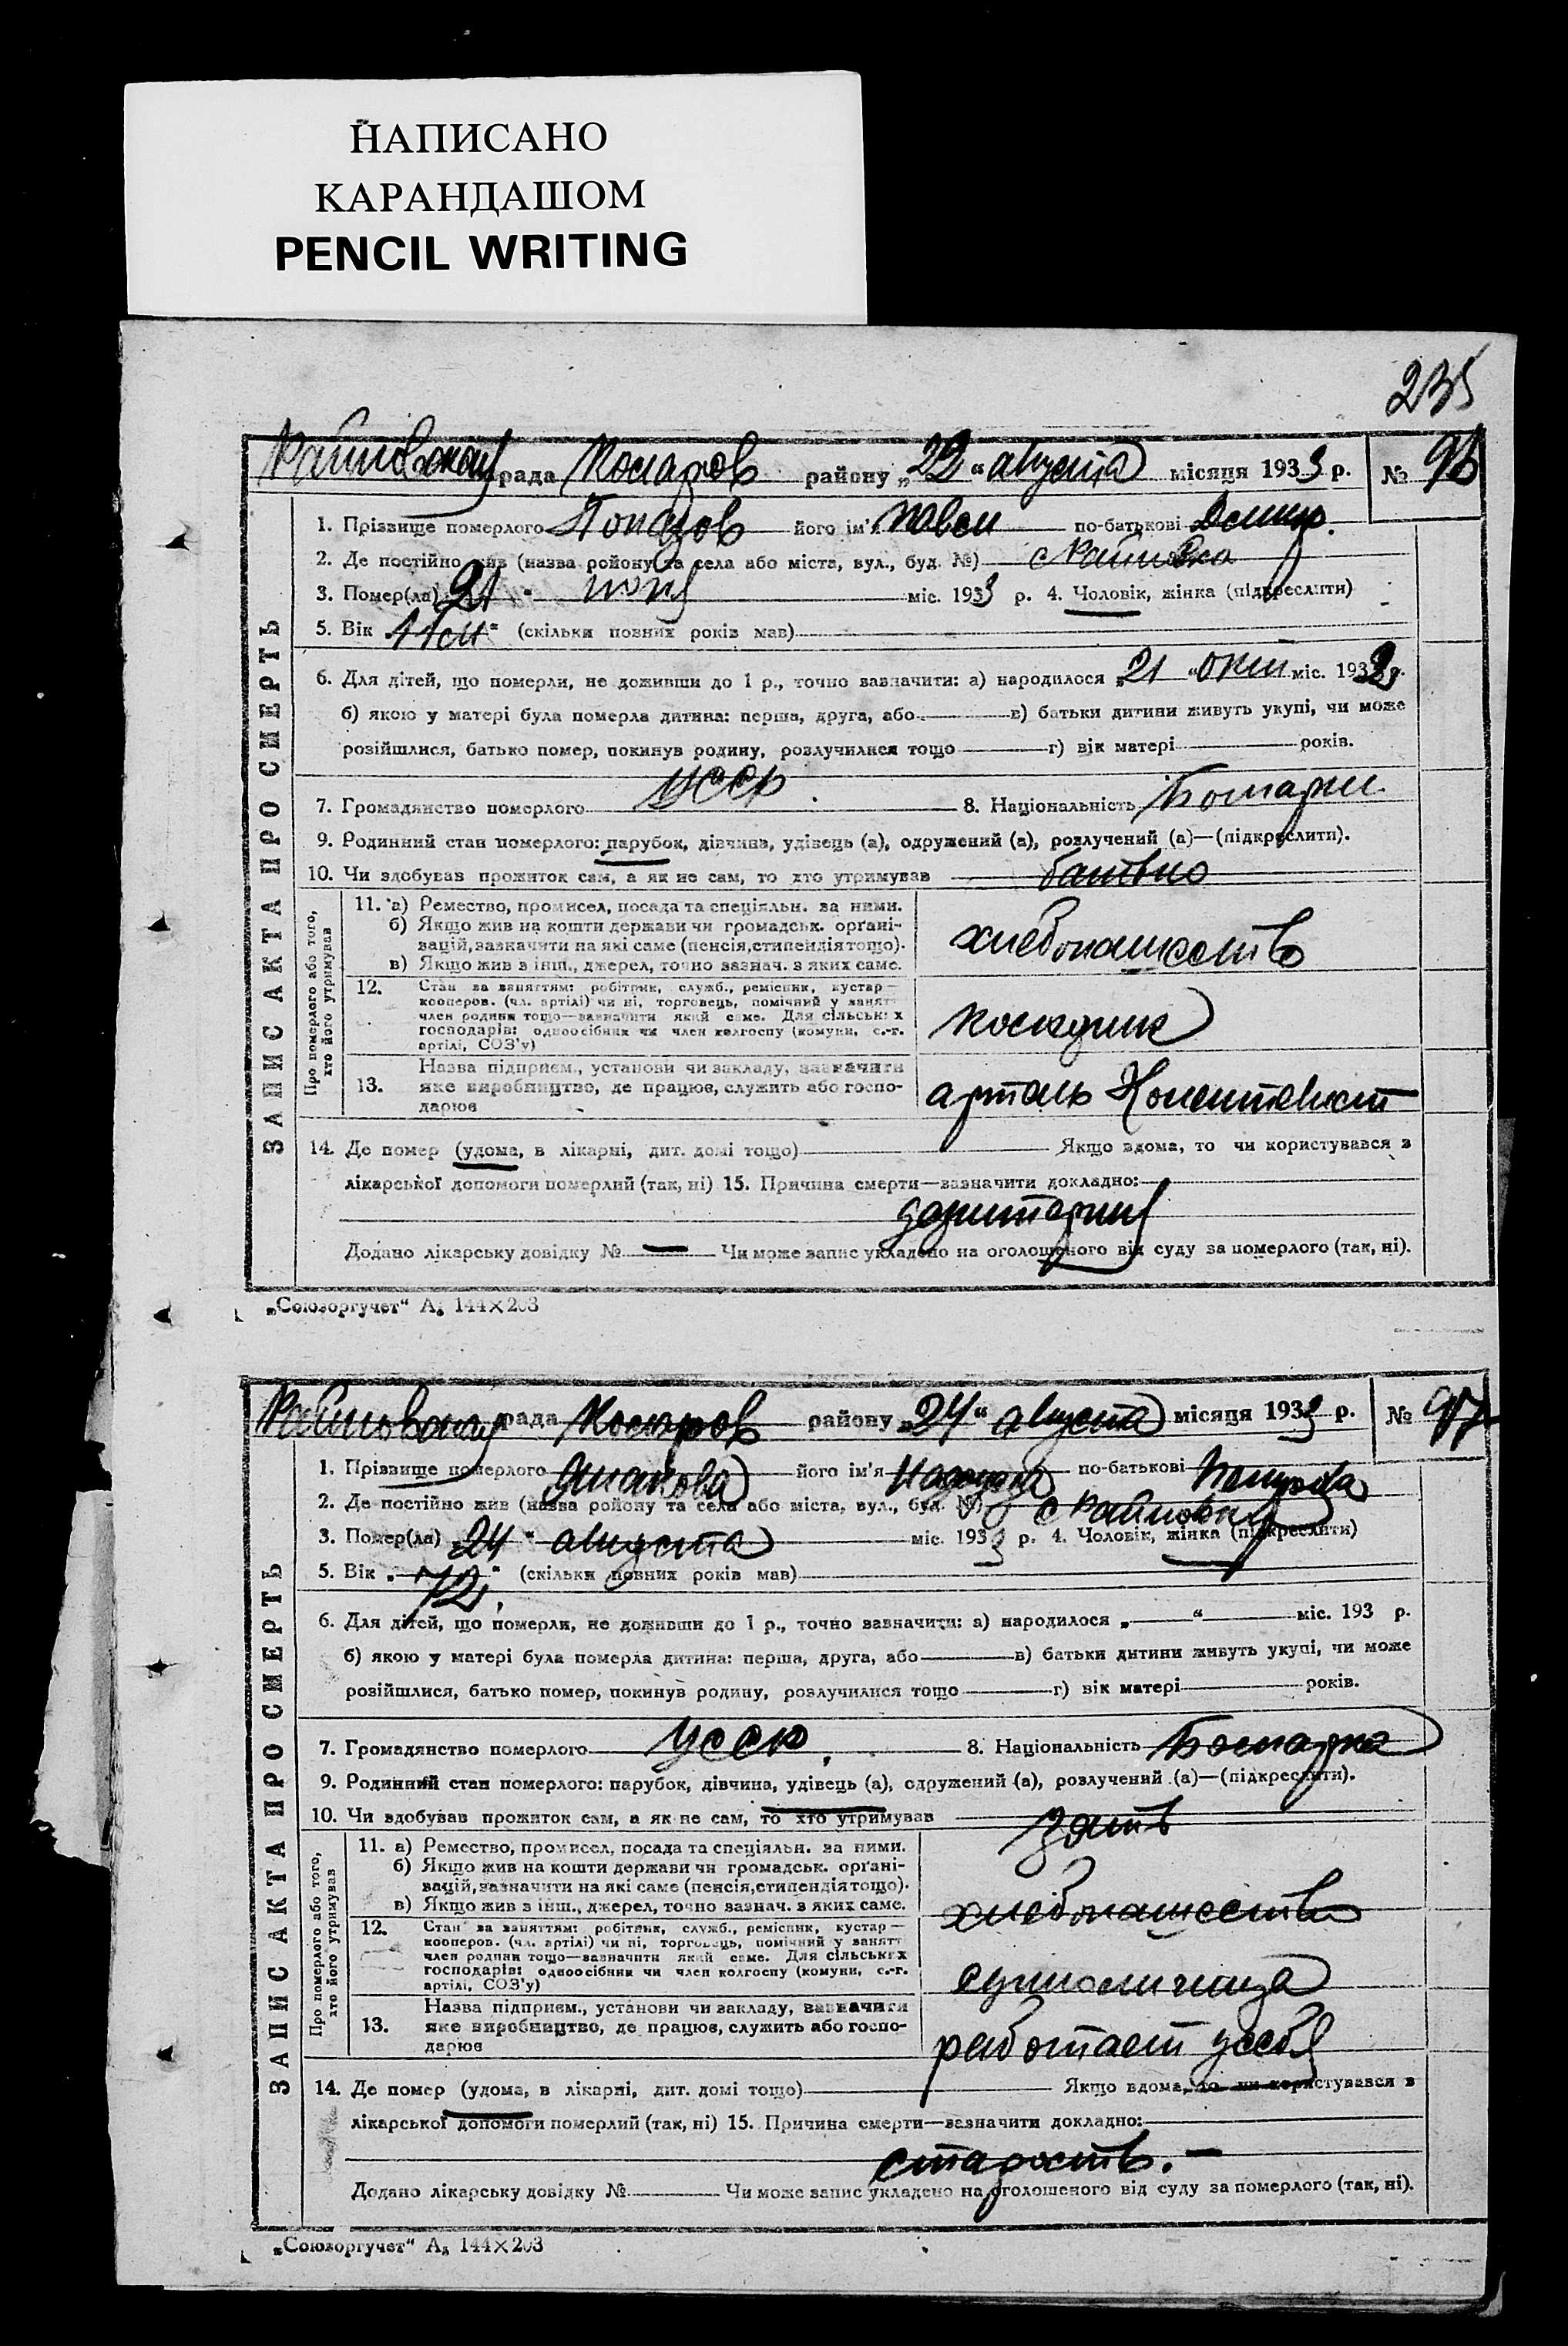 НАПИСАНО
КАРАНДАШОМ
PENCIL WRITING
235
рада Комаров району „22“ августа місяця 1933 р. № 96
1. Прізвище померлого його ім'я по-батькові
2. Де постійно жив (назва району та села або міста, вул., буд. №) с
3. Помер(ла) 21 міс. 1933 р. 4. Чоловік, жінка (підкреслити)
5. Вік „11 м“ (скільки повних років мав)
6. Для дітей, що померли, не доживши до 1 р., точно зазначити: а) народилося „21“ окт міс. 1932 р.
б) якою у матері була померла дитина: перша, друга, або в) батьки дитини живуть укупі, чи може
розійшлися, батько помер, покинув родину, розлучилися тощо г) вік матері років.
7. Громадянство померлого УССР. 8. Національність Болгарин
9. Родинний стан померлого: парубок, дівчина, удівець (а), одружений (а), розлучений (а)—(підкреслити).
10. Чи здобував прожиток сам, а як не сам, то хто утримував батько
ЗАПИС АКТА ПРО СМЕРТЬ
Про померлого або того, хто його утримував
11. а) Ремество, промисел, посада та спеціяльн. за ними.
б) Якщо жив на кошти держави чи громадськ. організацій, зазначити на які саме (пенсія, стипендія тощо).
в) Якщо жив з інш., джерел, точно зазнач. з яких саме.
хлебопашеств
12. Стан за заняттям: робітник, служб., ремісник, кустар—
кооперов. (чл. артілі) чи ні, торговець, помічний у занятт
член родини тощо—зазначити який саме. Для сільських
господарів: одноосібник чи член колгоспу (комуни, с.-г.
артілі, СОЗ'у)
13. Назва підприєм., установи чи закладу, зазначити
яке виробництво, де працює, служить або господарює
артель
14. Де помер (удома, в лікарні, дит. домі тощо) Якщо вдома, то чи користувався з
лікарської допомоги померлий (так, ні) 15. Причина смерти—зазначити докладно:
Додано лікарську довідку № — Чи може запис укладено на оголошеного від суду за померлого (так, ні).
„Союзоргучет“ А5 144×203
рада Комаров району „24“ августа місяця 1933 р. № 97
1. Прізвище померлого його ім'я по-батькові Петровна
2. Де постійно жив (назва району та села або міста, вул., буд. №) с
3. Помер(ла) 24 “ августа міс. 1933 р. 4. Чоловік, жінка (підкреслити)
5. Вік „72“ (скільки повних років мав)
6. Для дітей, що померли, не доживши до 1 р., точно зазначити: а) народилося „ “ міс. 193 р.
б) якою у матері була померла дитина: перша, друга, або в) батьки дитини живуть укупі, чи може
розійшлися, батько помер, покинув родину, розлучилися тощо г) вік матері років.
7. Громадянство померлого УССР. 8. Національність Болгарка
9. Родинний стан померлого: парубок, дівчина, удівець (а), одружений (а), розлучений (а)—(підкреслити).
10. Чи здобував прожиток сам, а як не сам, то хто утримував зять
ЗАПИС АКТА ПРО СМЕРТЬ
Про померлого або того, хто його утримував
11. а) Ремество, промисел, посада та спеціяльн. за ними.
б) Якщо жив на кошти держави чи громадськ. організацій, зазначити на які саме (пенсія, стипендія тощо).
в) Якщо жив з інш., джерел, точно зазнач. з яких саме.
хлебопашество
12. Стан за заняттям: робітник, служб., ремісник, кустар—
кооперов. (чл. артілі) чи ні, торговець, помічний у занятт
член родини тощо—зазначити який саме. Для сільських
господарів: одноосібник чи член колгоспу (комуни, с.-г.
артілі, СОЗ'у)
13. Назва підприєм., установи чи закладу, зазначити
яке виробництво, де працює, служить або господарює
работает у себя
14. Де помер (удома, в лікарні, дит. домі тощо) Якщо вдома, то чи користувався з
лікарської допомоги померлий (так, ні) 15. Причина смерти—зазначити докладно:
старость.—
Додано лікарську довідку № Чи може запис укладено на оголошеного від суду за померлого (так, ні).
„Союзоргучет“ А5 144×203